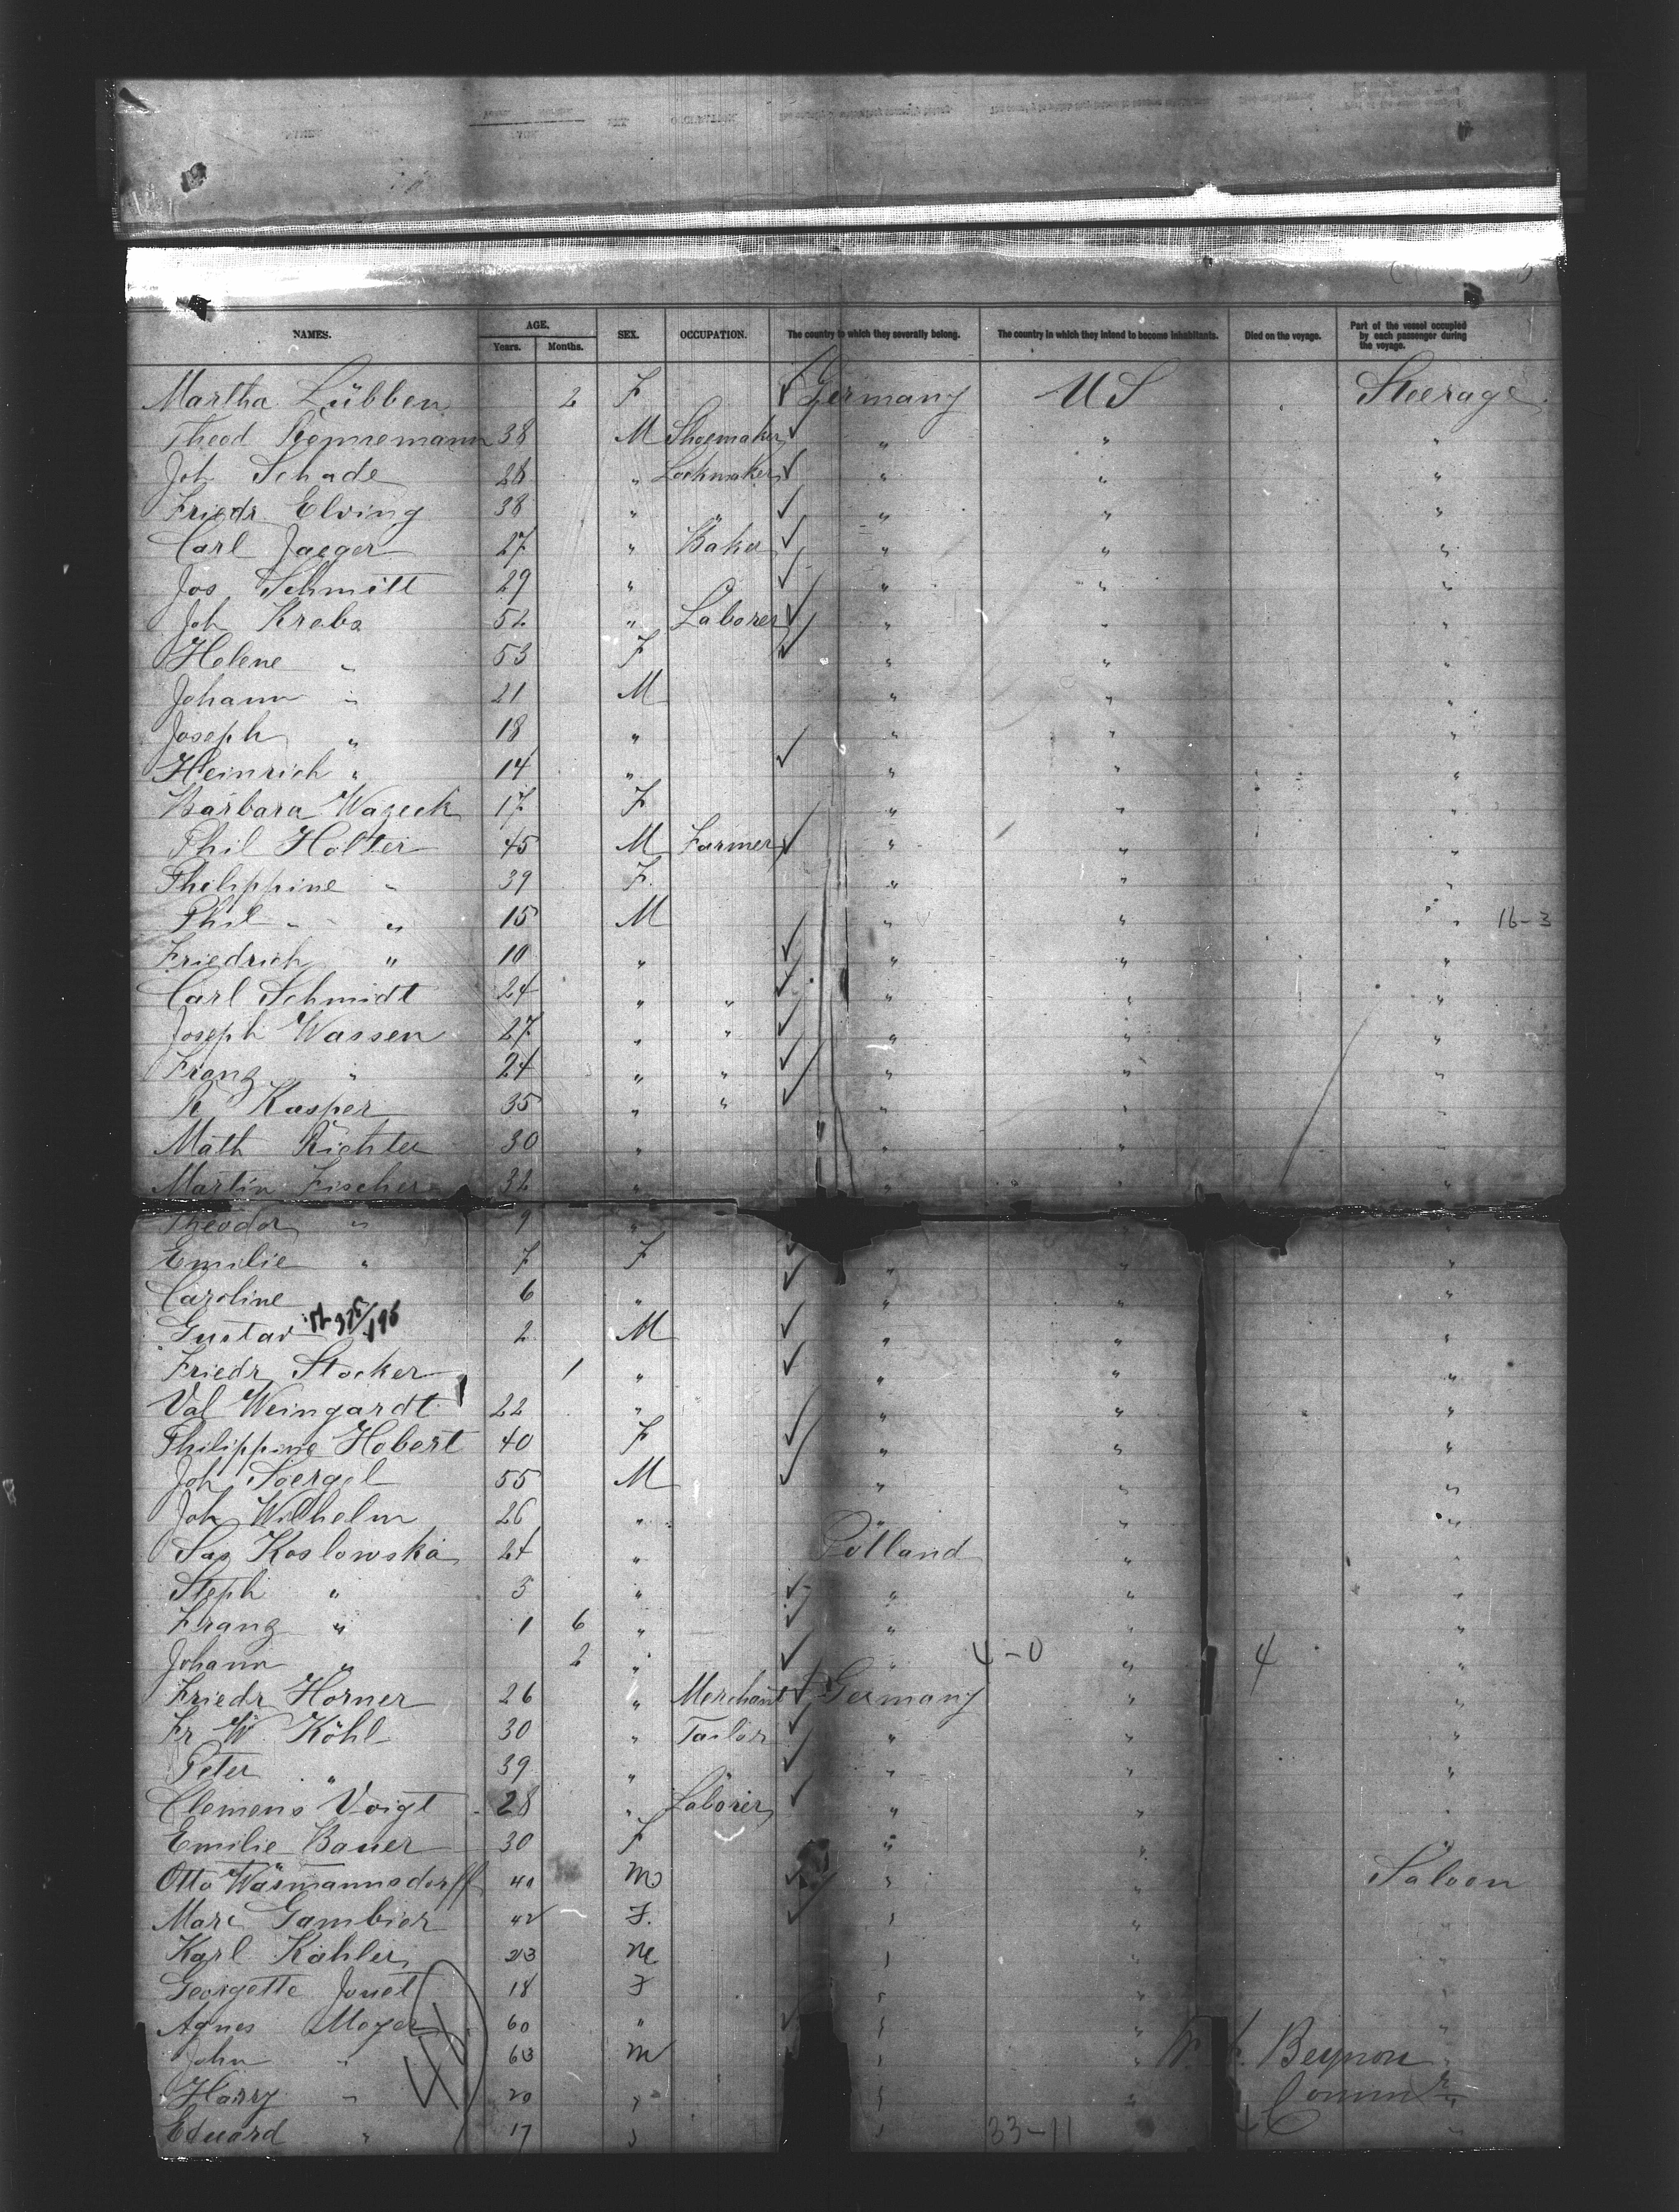 NAMES. AGE. Years. Months. SEX. OCCUPATION. The country to which they severally belong. The country in which they intend to become inhabitants. Died on the voyage. Part of the vessel occupied by each passenger during the voyage.
Martha Lübben 2 F Germany U S Steerage
Theod 38 M Shoemaker " " "
Joh Schade 28 " Lockmaker " " "
Friedr Elving 38 " " " " "
Carl Jaeger 27 " Baker " " "
Jos Schmitt 29 " " " "
Joh Krebs 52 " Laborer " " "
Helene " 53 F " " "
Johann " 21 M " " "
Joseph " 18 " " " "
Heinrich " 14 " " " "
Barbara Wazeck 17 F " " "
Phil Holter 45 M Farmer " " "
Philippine " 39 F. " " "
Phil " 15 M " " " 16-3
Friedrich " 10 " " " "
Carl Schmidt 24 " " " " "
Joseph Wassen 27 " " " " "
Franz " 24 " " " " "
Kasper 35 " " " " "
Math Richter 30 " " " "
Martin Fischer 32 " " " "
Theodor " 9 " " "
Emilie " 7 F " " "
Caroline 6 " " " "
Gustav 2 M " " "
Friedr Stocker 1 " " " "
Val Weingardt 22 " " " "
Philippine Hobert 40 F " " "
Joh Soergel 55 M " " "
Joh Wilhelm 26 " " " "
Koslowska 24 " Polland " "
Steph " 3 " " " "
Franz " 1 6 " " " "
Johann " 2 " " 4-0 " 4 "
Friedr Horner 26 " Merchant Germany " "
Fr W Köhl 30 " Tailor " " "
Peter " 39 " " " "
Clemens Voigt 28 " Laborer " " "
Emilie Bauer 30 F " "
Otto Wasmannsdorff 40 M " " Saloon
Marie Gambier 42 F. " " "
Karl Kahler 23 M " " "
Georgette Jouet 18 F " " "
Agnes Meyer 60 " " " "
John " 63 M " " Beynon "
Harry " 20 " " " Comm "
Eduard " 17 " " 33-11 "